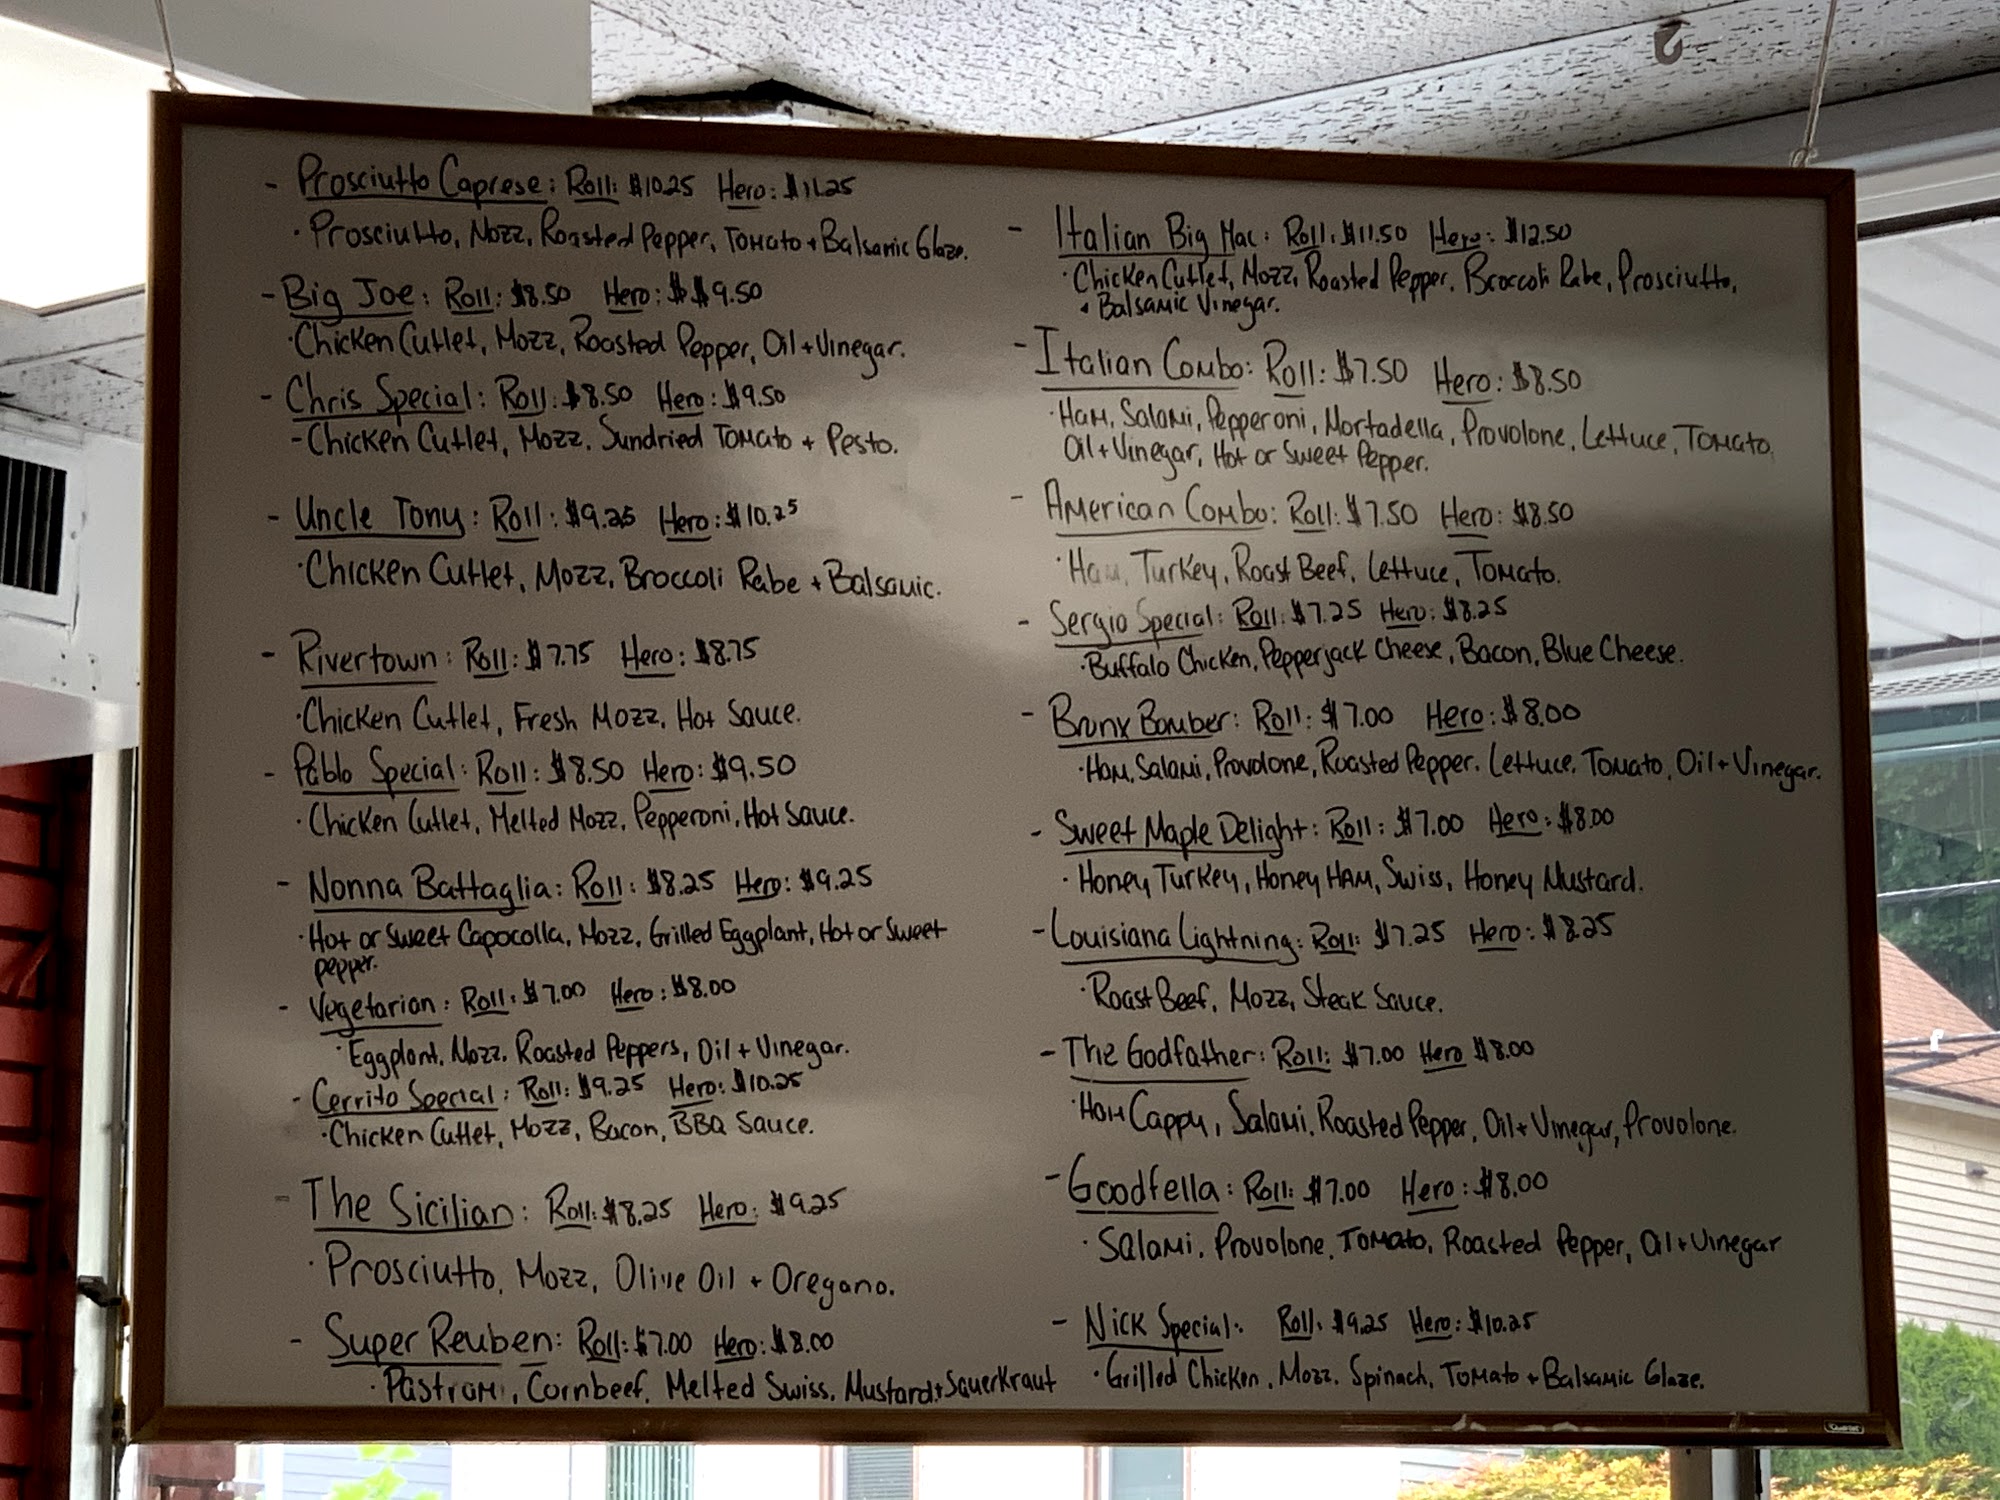 - Prosciutto Caprese: Roll: $10.25 Hero: $11.25
· Prosciutto, Mozz, Roasted Pepper, Tomato + Balsamic Glaze.
- Big Joe: Roll: $8.50 Hero: $ $9.50
· Chicken Cutlet, Mozz, Roasted Pepper, Oil + Vinegar.
- Chris Special: Roll: $8.50 Hero: $9.50
- Chicken Cutlet, Mozz, Sundried Tomato + Pesto.
- Uncle Tony: Roll: $9.25 Hero: $10.25
· Chicken Cutlet, Mozz, Broccoli Rabe + Balsamic.
- Rivertown: Roll: $7.75 Hero: $8.75
· Chicken Cutlet, Fresh Mozz, Hot Sauce.
- Pablo Special: Roll: $8.50 Hero: $9.50
· Chicken Cutlet, Melted Mozz, Pepperoni, Hot Sauce.
- Nonna Battaglia: Roll: $8.25 Hero: $9.25
· Hot or Sweet Capocolla, Mozz, Grilled Eggplant, Hot or Sweet
pepper.
- Vegetarian: Roll: $7.00 Hero: $8.00
· Eggplant, Mozz, Roasted Peppers, Oil + Vinegar.
- Cerrito Special: Roll: $9.25 Hero: $10.25
· Chicken Cutlet, Mozz, Bacon, BBQ Sauce.
- The Sicilian: Roll: $8.25 Hero: $9.25
· Prosciutto, Mozz, Olive Oil + Oregano.
- Super Reuben: Roll: $7.00 Hero: $8.00
· Pastrami, Cornbeef, Melted Swiss, Mustard + Sauerkraut
- Italian Big Mac: Roll: $11.50 Hero: $12.50
· Chicken Cutlet, Mozz, Roasted Pepper, Broccoli Rabe, Prosciutto,
+ Balsamic Vinegar.
- Italian Combo: Roll: $7.50 Hero: $8.50
· Ham, Salami, Pepperoni, Mortadella, Provolone, Lettuce, Tomato,
Oil + Vinegar, Hot or Sweet Pepper.
- American Combo: Roll: $7.50 Hero: $8.50
· Ham, Turkey, Roast Beef, Lettuce, Tomato.
- Sergio Special: Roll: $7.25 Hero: $8.25
· Buffalo Chicken, Pepperjack Cheese, Bacon, Blue Cheese.
- Bronx Bomber: Roll: $7.00 Hero: $8.00
· Ham, Salami, Provolone, Roasted Pepper, Lettuce, Tomato, Oil + Vinegar.
- Sweet Maple Delight: Roll: $7.00 Hero: $8.00
· Honey Turkey, Honey Ham, Swiss, Honey Mustard.
- Louisiana Lightning: Roll: $7.25 Hero: $8.25
· Roast Beef, Mozz, Steak Sauce.
- The Godfather: Roll: $7.00 Hero $8.00
· Ham Cappy, Salami, Roasted Pepper, Oil + Vinegar, Provolone.
- Goodfella: Roll: $7.00 Hero: $8.00
· Salami, Provolone, Tomato, Roasted Pepper, Oil + Vinegar
- Nick Special: Roll: $9.25 Hero: $10.25
· Grilled Chicken, Mozz, Spinach, Tomato + Balsamic Glaze.